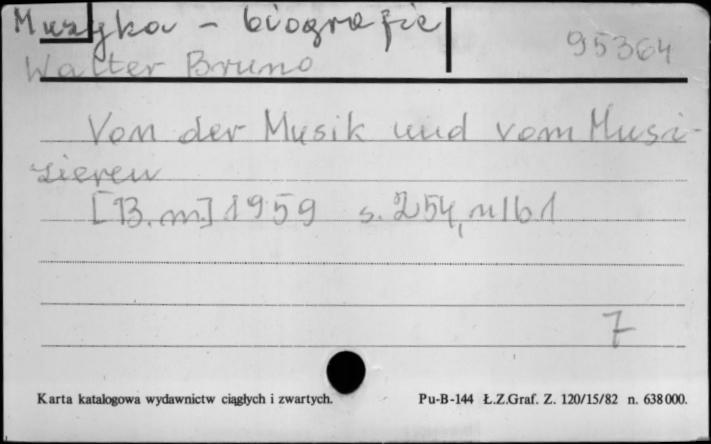 Muzyka - biografie
95364
Walter Bruno
Von der Musik und vom Musi-
zieren
[B.m.] 1959 s. 254, nlb 1
7
Karta katalogowa wydawnictw ciągłych i zwartych. Pu-B-144 Ł.Z.Graf. Z. 120/15/82 n. 638000.